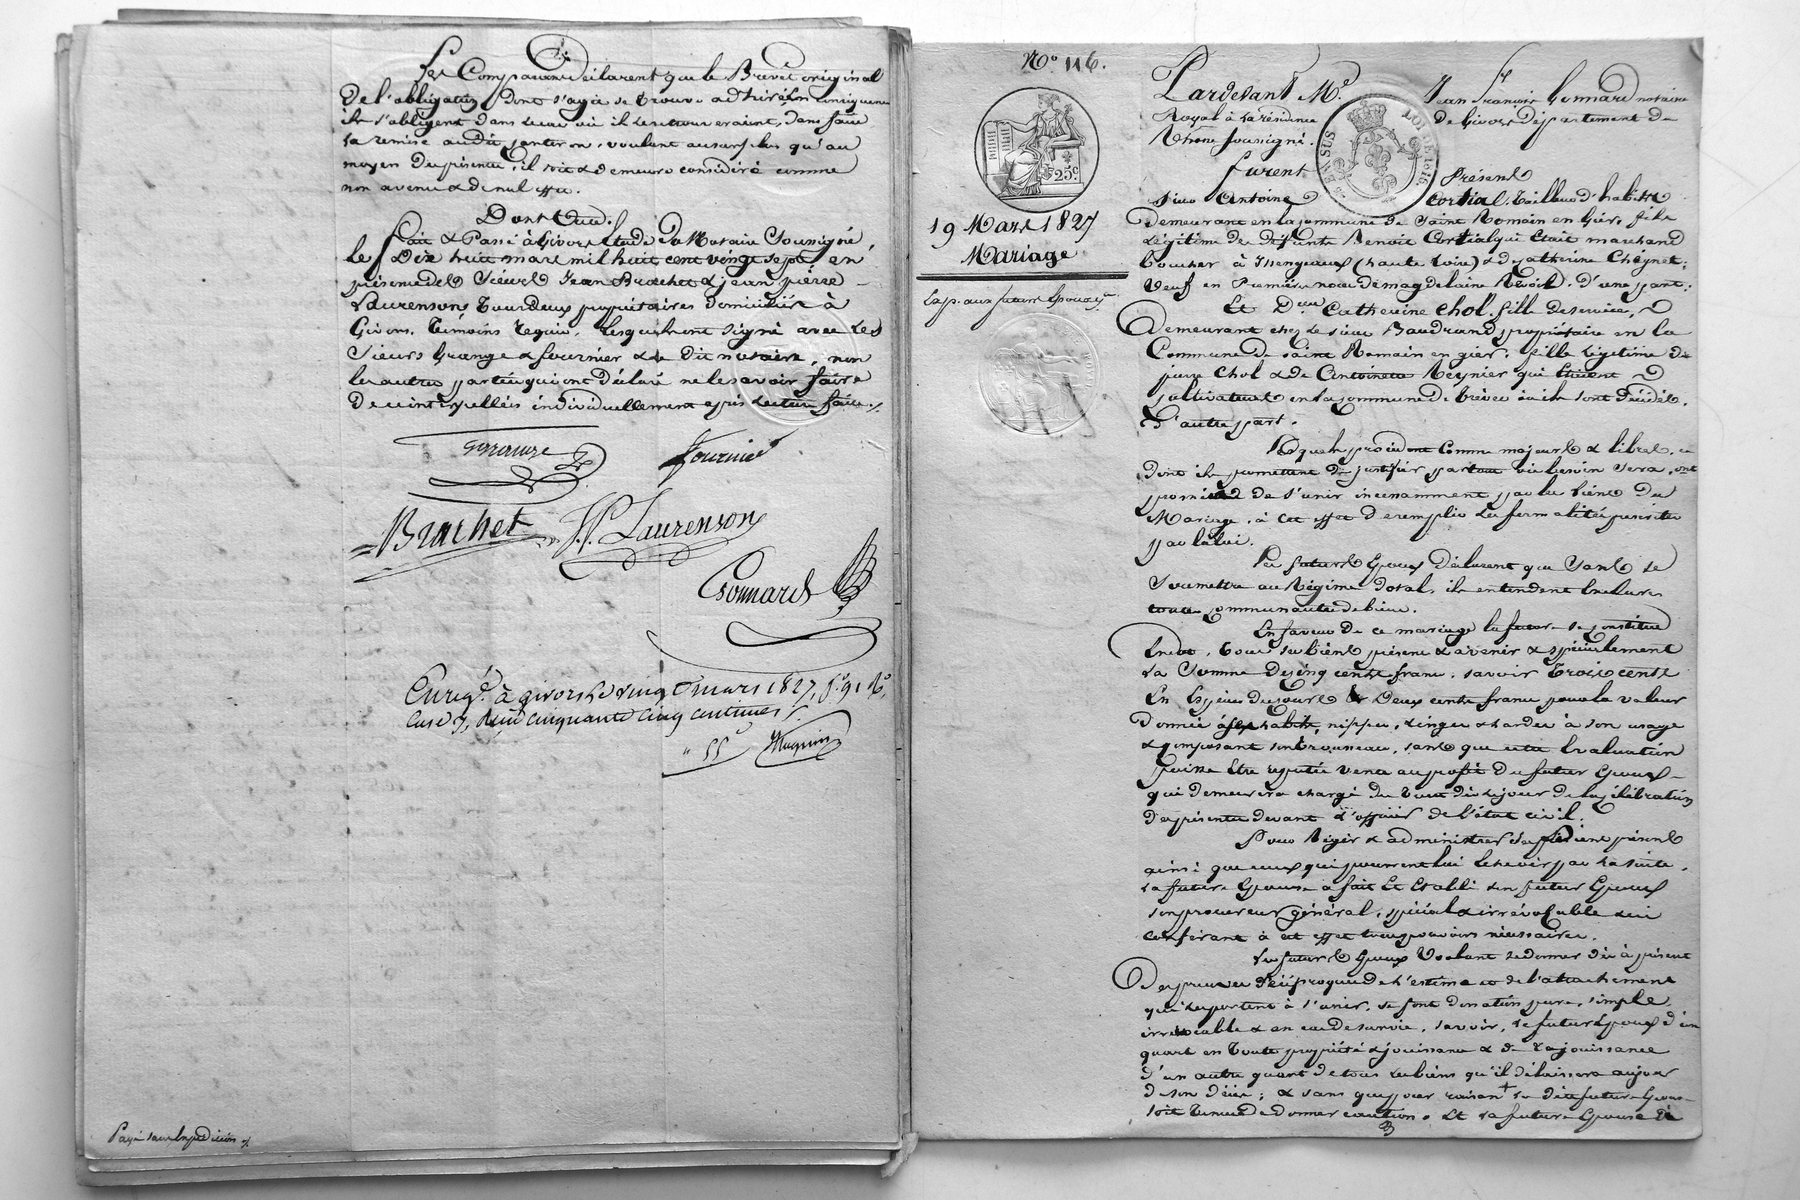 Les Comparants déclarent que le Brevet original
De l'obligation Dont s'agit se trouve adhiré En conséquence
ils s'obligent dans le cas où ils le retrouveraient, Dans faire
la remise audit, voulant au surplus qu'au
moyen Des présentes, il soit & demeure considéré comme
non avenu & de nul effet.
Dont Acte.
Fait & Passé à Givors Etude Du Notaire Soussigné,
le Dix huit mars mil huit cent vingt sept en
présence des Sieurs Jean Brachet & jean pierre
Laurenson, Tous deux propriétaires domiciliés à
Givors, Témoins requis, Lesquels ont signé avec les
Sieurs Grange & fournier & le Dit notaire, non
les autres parties qui ont Déclaré ne le savoir faire
De ce interpellées individuellement après lecture faite.
Grange
fournier
Brachet
J.P. Laurenson
Gonnard
Enregé. à givors le vingt mars 1827, f.° 91 R.°
Case 7, Reçu cinquante cinq centimes
" 55 c
Payé sans Expédition
N.° 116.
25 c.
19 Mars 1827
Mariage
Exp. aux futurs Epoux
Pardevant M.e Jean François Gonnard notaire
Royal à la résidence de Givors Département du
Rhône soussigné.
furent Présents
Sieur Antoine Cortial, Tailleur d'habits
Demeurant en la commune de Saint Romain en Giers, fils
Légitime de Défunts Benoit Cortial qui était marchand
boucher à Yssengeaux (haute Loire) & de Catherine Cheynet;
Veuf en Premières noces de magdelaine Revoil, d'une part;
Et D.elle Catherine Chol, fille de service,
Demeurant chez le sieur Baudrand propriétaire en la
Commune de Saint Romain en gier, fille légitime de
pierre Chol & de Antoinette Reynier qui étaient
Cultivateurs en la commune de Trèves où ils sont Décédés,
D'autre part.
Lesquels procédant Comme majeurs & libres, ce
dont ils promettent de justifier partout où besoin sera, ont
promis de s'unir incessamment par les liens Du
Mariage, à cet effet d'remplir les formalités prescrites
par la loi.
Les futurs Epoux Déclarent que Sans se
Soumettre au Régime Dotal, ils entendent Exclure
toute communauté de biens.
En faveur de ce mariage la future se constitue
En Dot, Tous ses biens présents & avenir & spécialement
la Somme De cinq cents francs, savoir Trois cents
En Espèces Du cours & Deux cents francs pour la valeur
Donnée à ses habits, nippes, linges & hardes à son usage
& composant son trousseau, sans que cette Evaluation
puisse Etre réputée vente au profit Du futur Epoux
qui demeurera chargé du Tout dès le jour de la célébration
Des présentes devant l'officier de l'état civil.
Pour Régir & administrer ses biens présents
ainsi que ceux qui pourront lui Echoir par la suite,
la future Epouse a fait Et Etabli son futur Epoux
son procureur général, spécial & irrévocable & lui
conférant à cet effet tous pouvoirs nécessaires.
Les futurs Epoux Voulant se donner dès à présent
Des preuves Réciproques de l'estime et de l'attachement
qui les portent à s'unir, se font donation pure, simple,
irrévocable & en cas de survie, savoir, le futur Epoux d'un
quart en Toute propriété & jouissance & de la jouissance
d'un autre quart de tous les biens qu'il délaissera au jour
De son Décès; & sans que pour raison la dite future Epouse
soit Tenue de donner caution. Et la future Epouse de